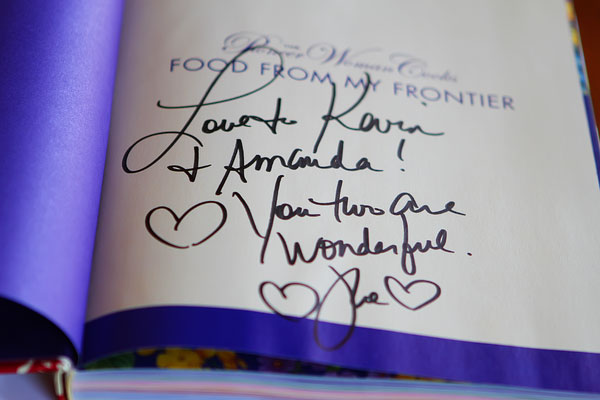 The Pioneer Woman Cooks
FOOD FROM MY FRONTIER
Love to Kevin
& Amanda!
You two are
wonderful.
Ree